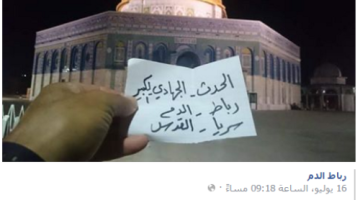 الحدث - الجهادي يكبر
رباط - الدم
سريا - القدس
رباط الدم
16 يوليو، الساعة 09:18 مساءً ·